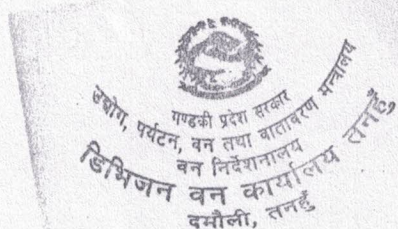 गण्डकी प्रदेश सरकार
उद्योग, पर्यटन, वन तथा वातावरण मन्त्रालय
वन निर्देशनालय
डिभिजन वन कार्यालय तनहुँ,
दमौली, तनहुँ